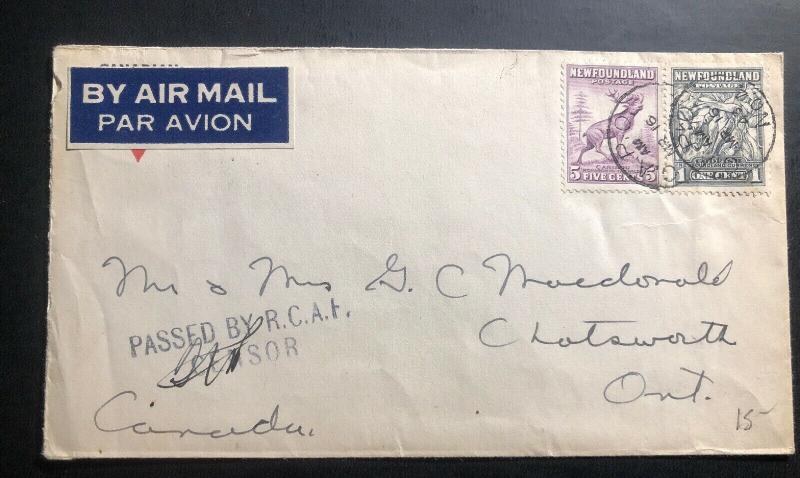 CANADIAN
BY AIR MAIL
PAR AVION
NEWFOUNDLAND
POSTAGE
CARIBOU
5 FIVE CENTS 5
NEWFOUNDLAND
POSTAGE
1 ONE CENT 1
Mr & Mrs G. C Macdonald
PASSED BY R.C.A.F.
CENSOR
Chatsworth
Ont.
Canada.
15-